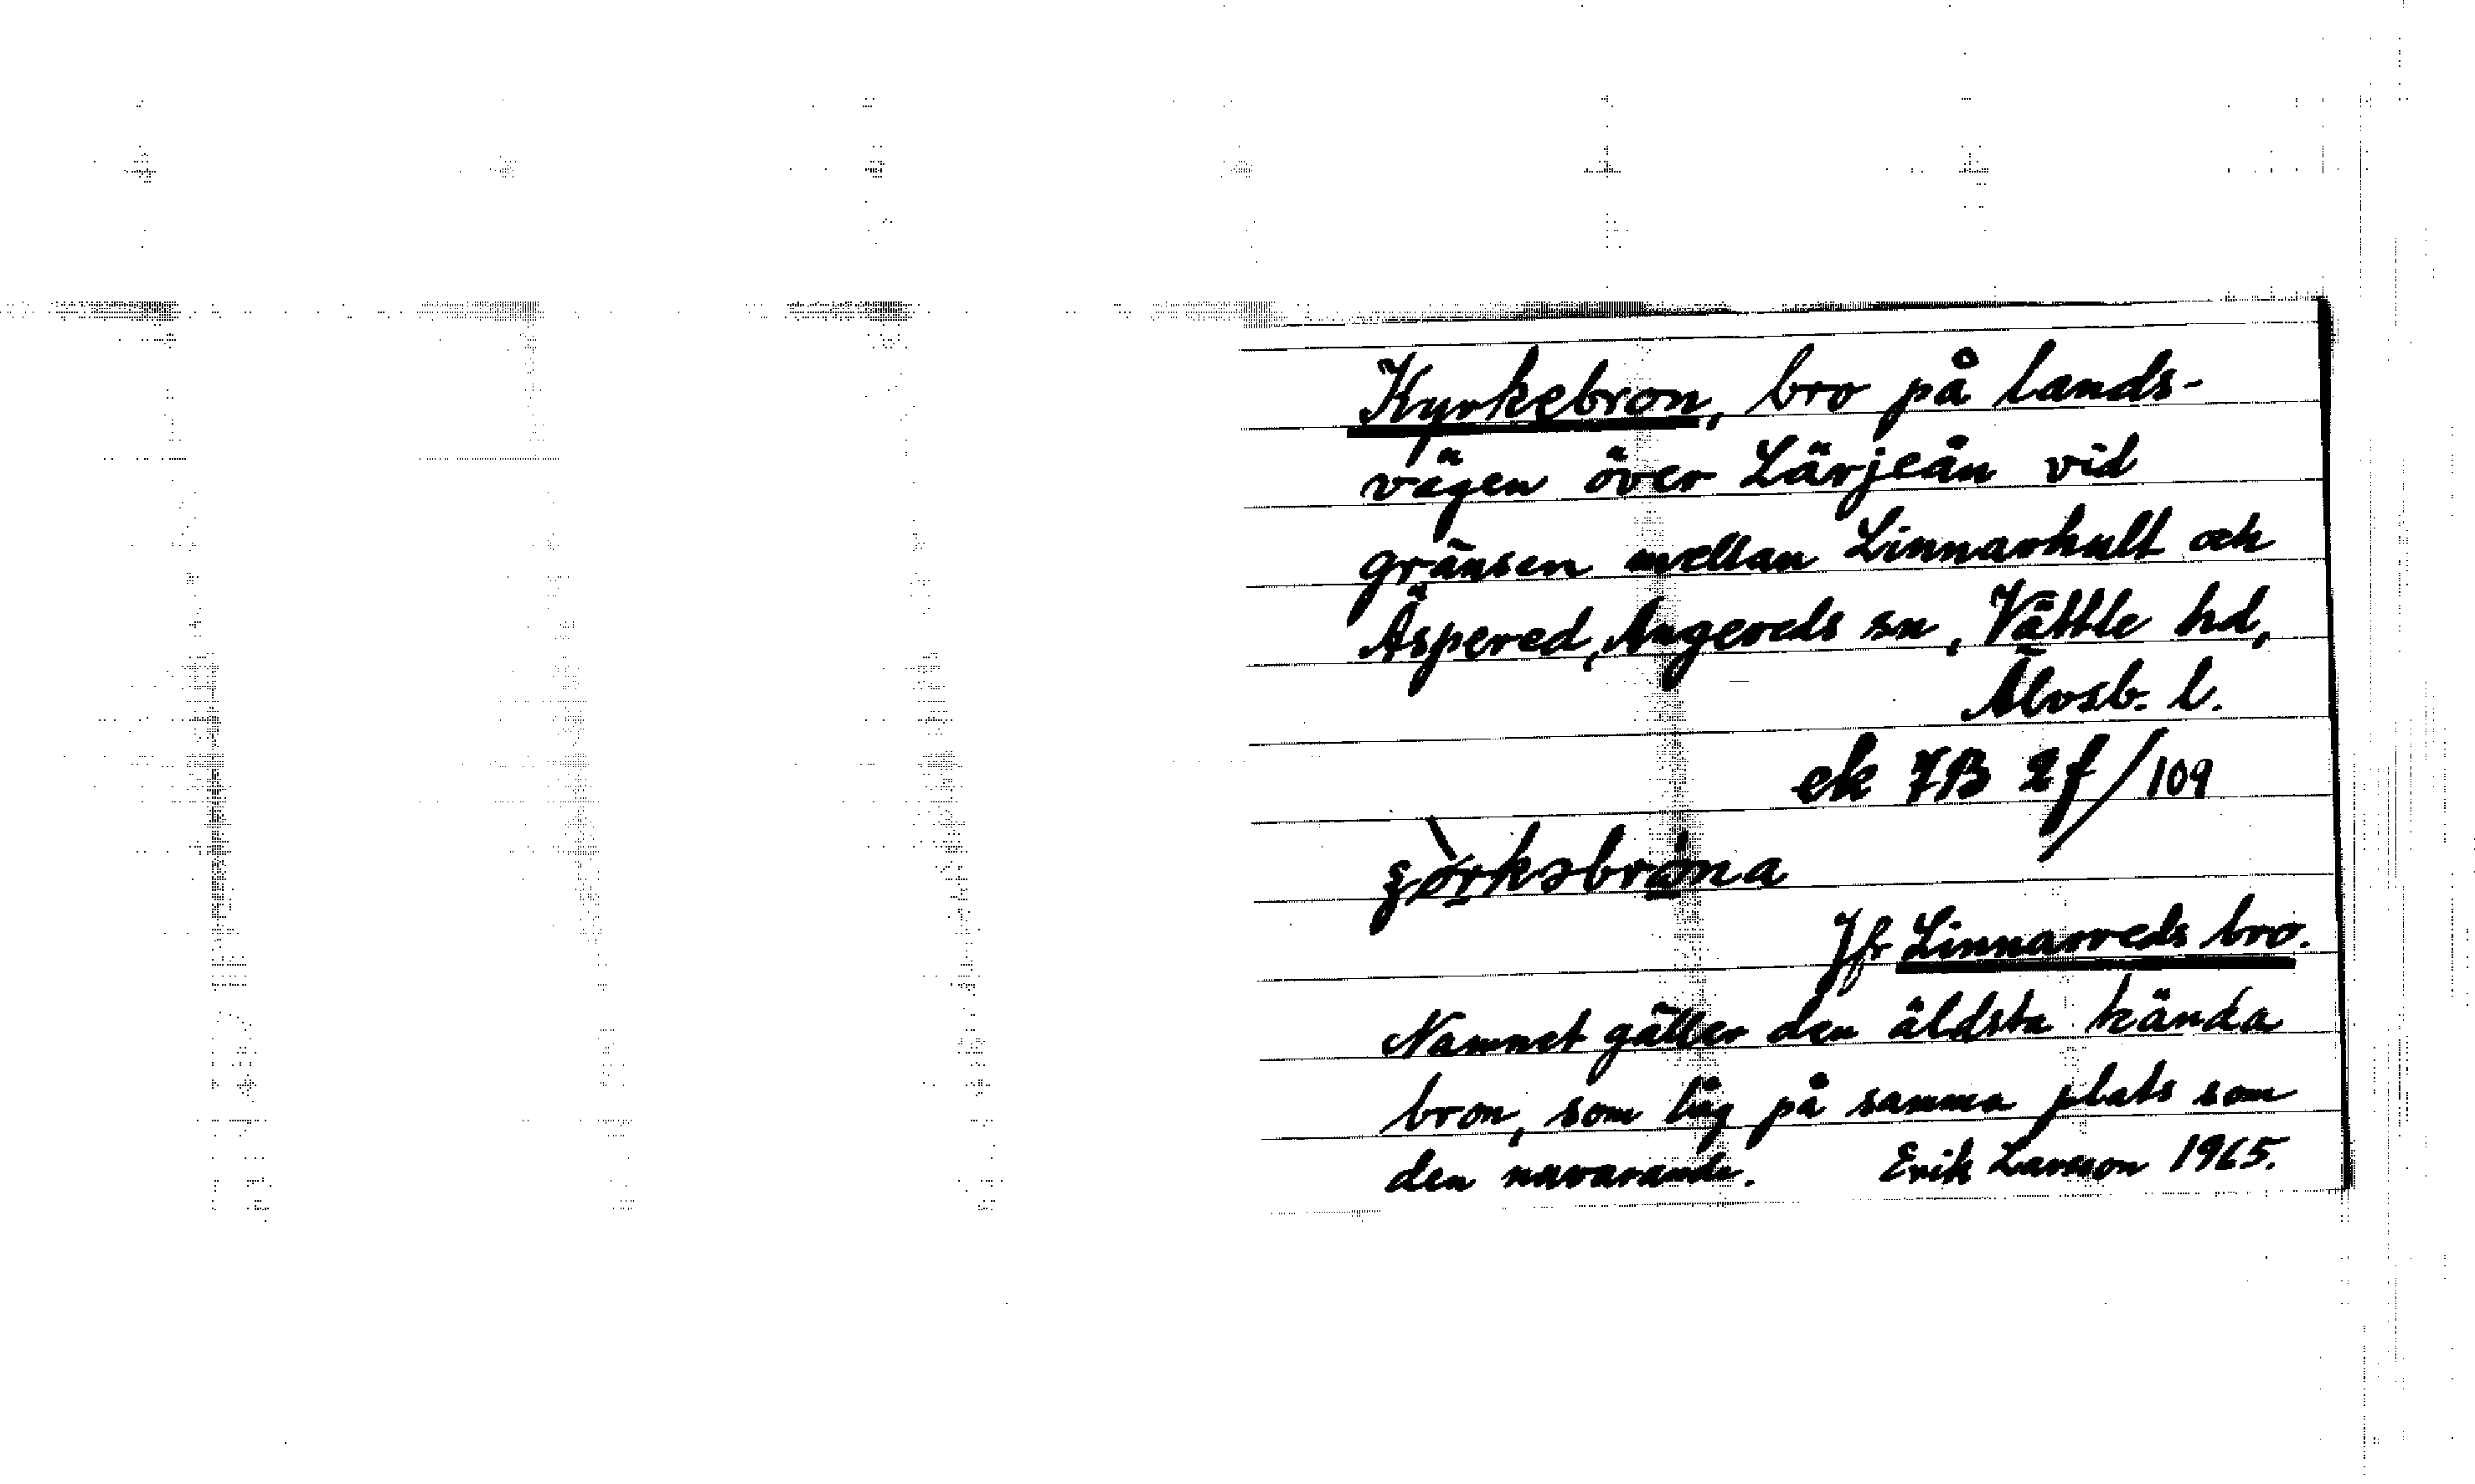 Kyrkebron, bro på lands-
vägen över Lärjeån vid
gränsen mellan Linnarhult och
Äspered, Angereds sn, Vättle hd,
Älvsb. l.
ek 7B 2f/109
Jfr Linnarveds bro.
Namnet gäller den äldsta kända
bron, som låg på samma plats som
den nuvarande. Erik Larsson 1965.